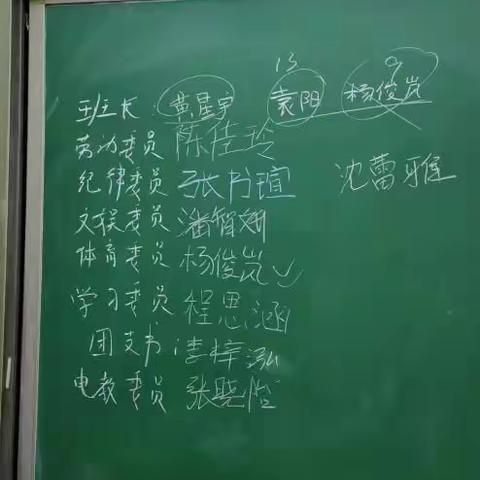 13 9
班长 黄星宇 袁阳 杨俊岚
劳动委员 陈佳玲
纪律委员 张乃瑄 沈蕾雅
文娱委员 潘智姗
体育委员 杨俊岚
学习委员 程思涵
团支书 李梓泓
电教委员 张晓